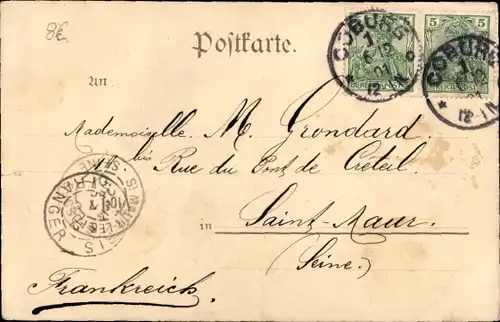 Postkarte.
COBURG
1
6 12
01
12-1N
5
COBURG
1
12-1N
An
Mademoiselle. M. Grondard
bis Rue du Pont de Créteil.
in Saint-Maur.
(Seine.)
Frankreich.
ST MAUR-LES-FOSSÉS
SEINE
ETRANGER